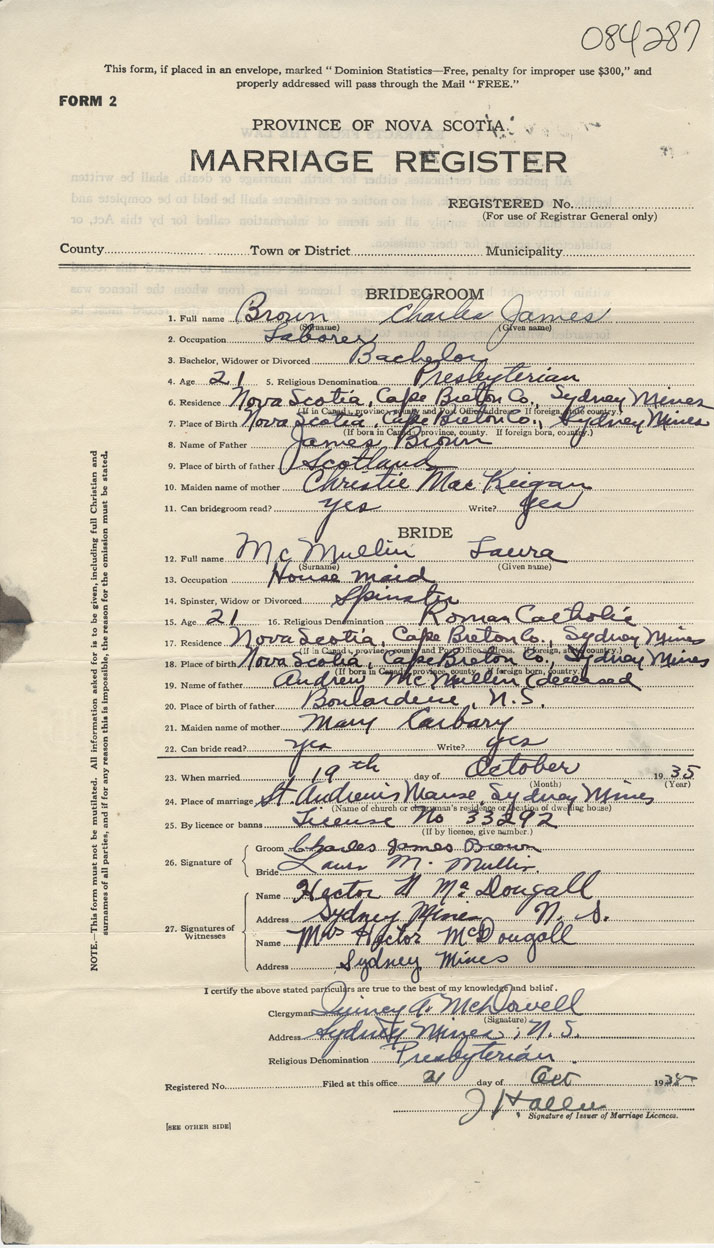 084287
This form, if placed in an envelope, marked " Dominion Statistics—Free, penalty for improper use $300," and
properly addressed will pass through the Mail " FREE."
FORM 2
PROVINCE OF NOVA SCOTIA
MARRIAGE REGISTER
REGISTERED No.
(For use of Registrar General only)
County Town or District Municipality
BRIDEGROOM
1. Full name Brown Charles James
(Surname) (Given name)
2. Occupation Laborer
3. Bachelor, Widower or Divorced Bachelor
4. Age 21 5. Religious Denomination Presbyterian
6. Residence Nova Scotia, Cape Breton Co., Sydney Mines
(If in Canada, province, county and Post Office address. If foreign, state country.)
7. Place of Birth Nova Scotia, Cape Breton Co., Sydney Mines
(If born in Canada, province, county. If foreign born, country.)
8. Name of Father James Brown
9. Place of birth of father Scotland
10. Maiden name of mother Christie MacKeigan
11. Can bridegroom read? yes Write? yes
BRIDE
12. Full name McMullin Laura
(Surname) (Given name)
13. Occupation House maid
14. Spinster, Widow or Divorced Spinster
15. Age 21 16. Religious Denomination Roman Catholic
17. Residence Nova Scotia, Cape Breton Co., Sydney Mines
(If in Canada, province, county and Post Office address. If foreign, state country.)
18. Place of birth Nova Scotia, Cape Breton Co., Sydney Mines
(If born in Canada, province, county. If foreign born, country.)
19. Name of father Andrew McMullin (deceased
20. Place of birth of father Boularderie, N.S.
21. Maiden name of mother Mary Carbary
22. Can bride read? yes Write? yes
23. When married 19th day of October 1935
(Month) (Year)
24. Place of marriage St. Andrew's Manse, Sydney Mines
(Name of church or clergyman's residence or location of dwelling house)
25. By licence or banns License No 33292
(If by licence, give number.)
26. Signature of
Groom Charles James Brown
Bride Laura McMullin.
27. Signatures of Witnesses
Name Hector McDougall
Address Sydney Mines N. S.
Name Mrs Hector McDougall
Address Sydney Mines
I certify the above stated particulars are true to the best of my knowledge and belief.
Clergyman Quincy A. McDowell
(Signature)
Address Sydney Mines, N.S.
Religious Denomination Presbyterian.
Registered No. Filed at this office 21 day of Oct 1935
Signature of Issuer of Marriage Licences.
[SEE OTHER SIDE]
NOTE.—This form must not be mutilated. All information asked for is to be given, including full Christian and
surnames of all parties, and if for any reason this is impossible, the reason for the omission must be stated.